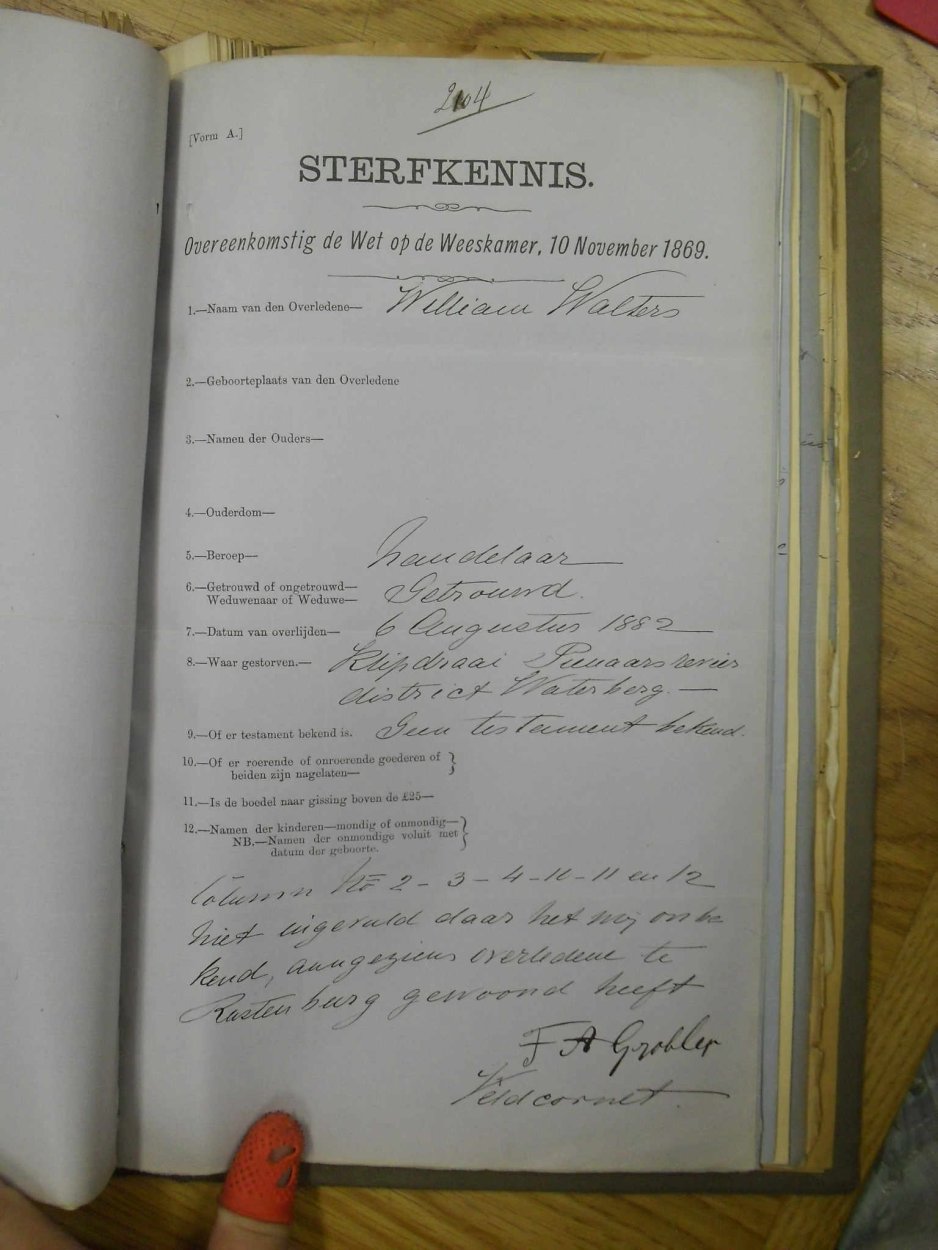 2104
[Vorm A.]
STERFKENNIS.
Overeenkomstig de Wet op de Weeskamer, 10 November 1869.
1.—Naam van den Overledene— William Walters
2.—Geboorteplaats van den Overledene
3.—Namen der Ouders—
4.—Ouderdom—
5.—Beroep— handelaar
6.—Getrouwd of ongetrouwd— Getrouwd.
Weduwenaar of Weduwe—
7.—Datum van overlijden— 6 Augustus 1882
8.—Waar gestorven.— Klipdraai Pienaars revier
district Waterberg.—
9.—Of er testament bekend is. Geen testament bekend.
10.—Of er roerende of onroerende goederen of
beiden zijn nagelaten—
11.—Is de boedel naar gissing boven de £25—
12.—Namen der kinderen—mondig of onmondig—
NB.—Namen der onmondige voluit met
datum der geboorte.
Column No 2-3-4-10-11 en 12
niet ingevuld daar het mij onbe
kend, aangeziens overledene te
Rustenburg gewoond heeft
F A Grobler
Veldcornet.